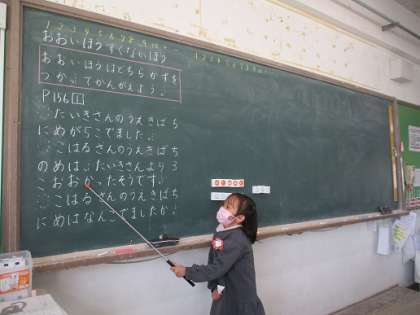 おおいほう すくないほう
おおいほうはどちら かずを
つかってかんがえよう。
P156 1
たいきさんのうえきばち
にめが5こでました。
こはるさんのうえきばち
のめは、たいきさんより3
こおおかったそうです。
こはるさんのうえきばち
にめはなんこでましたか。